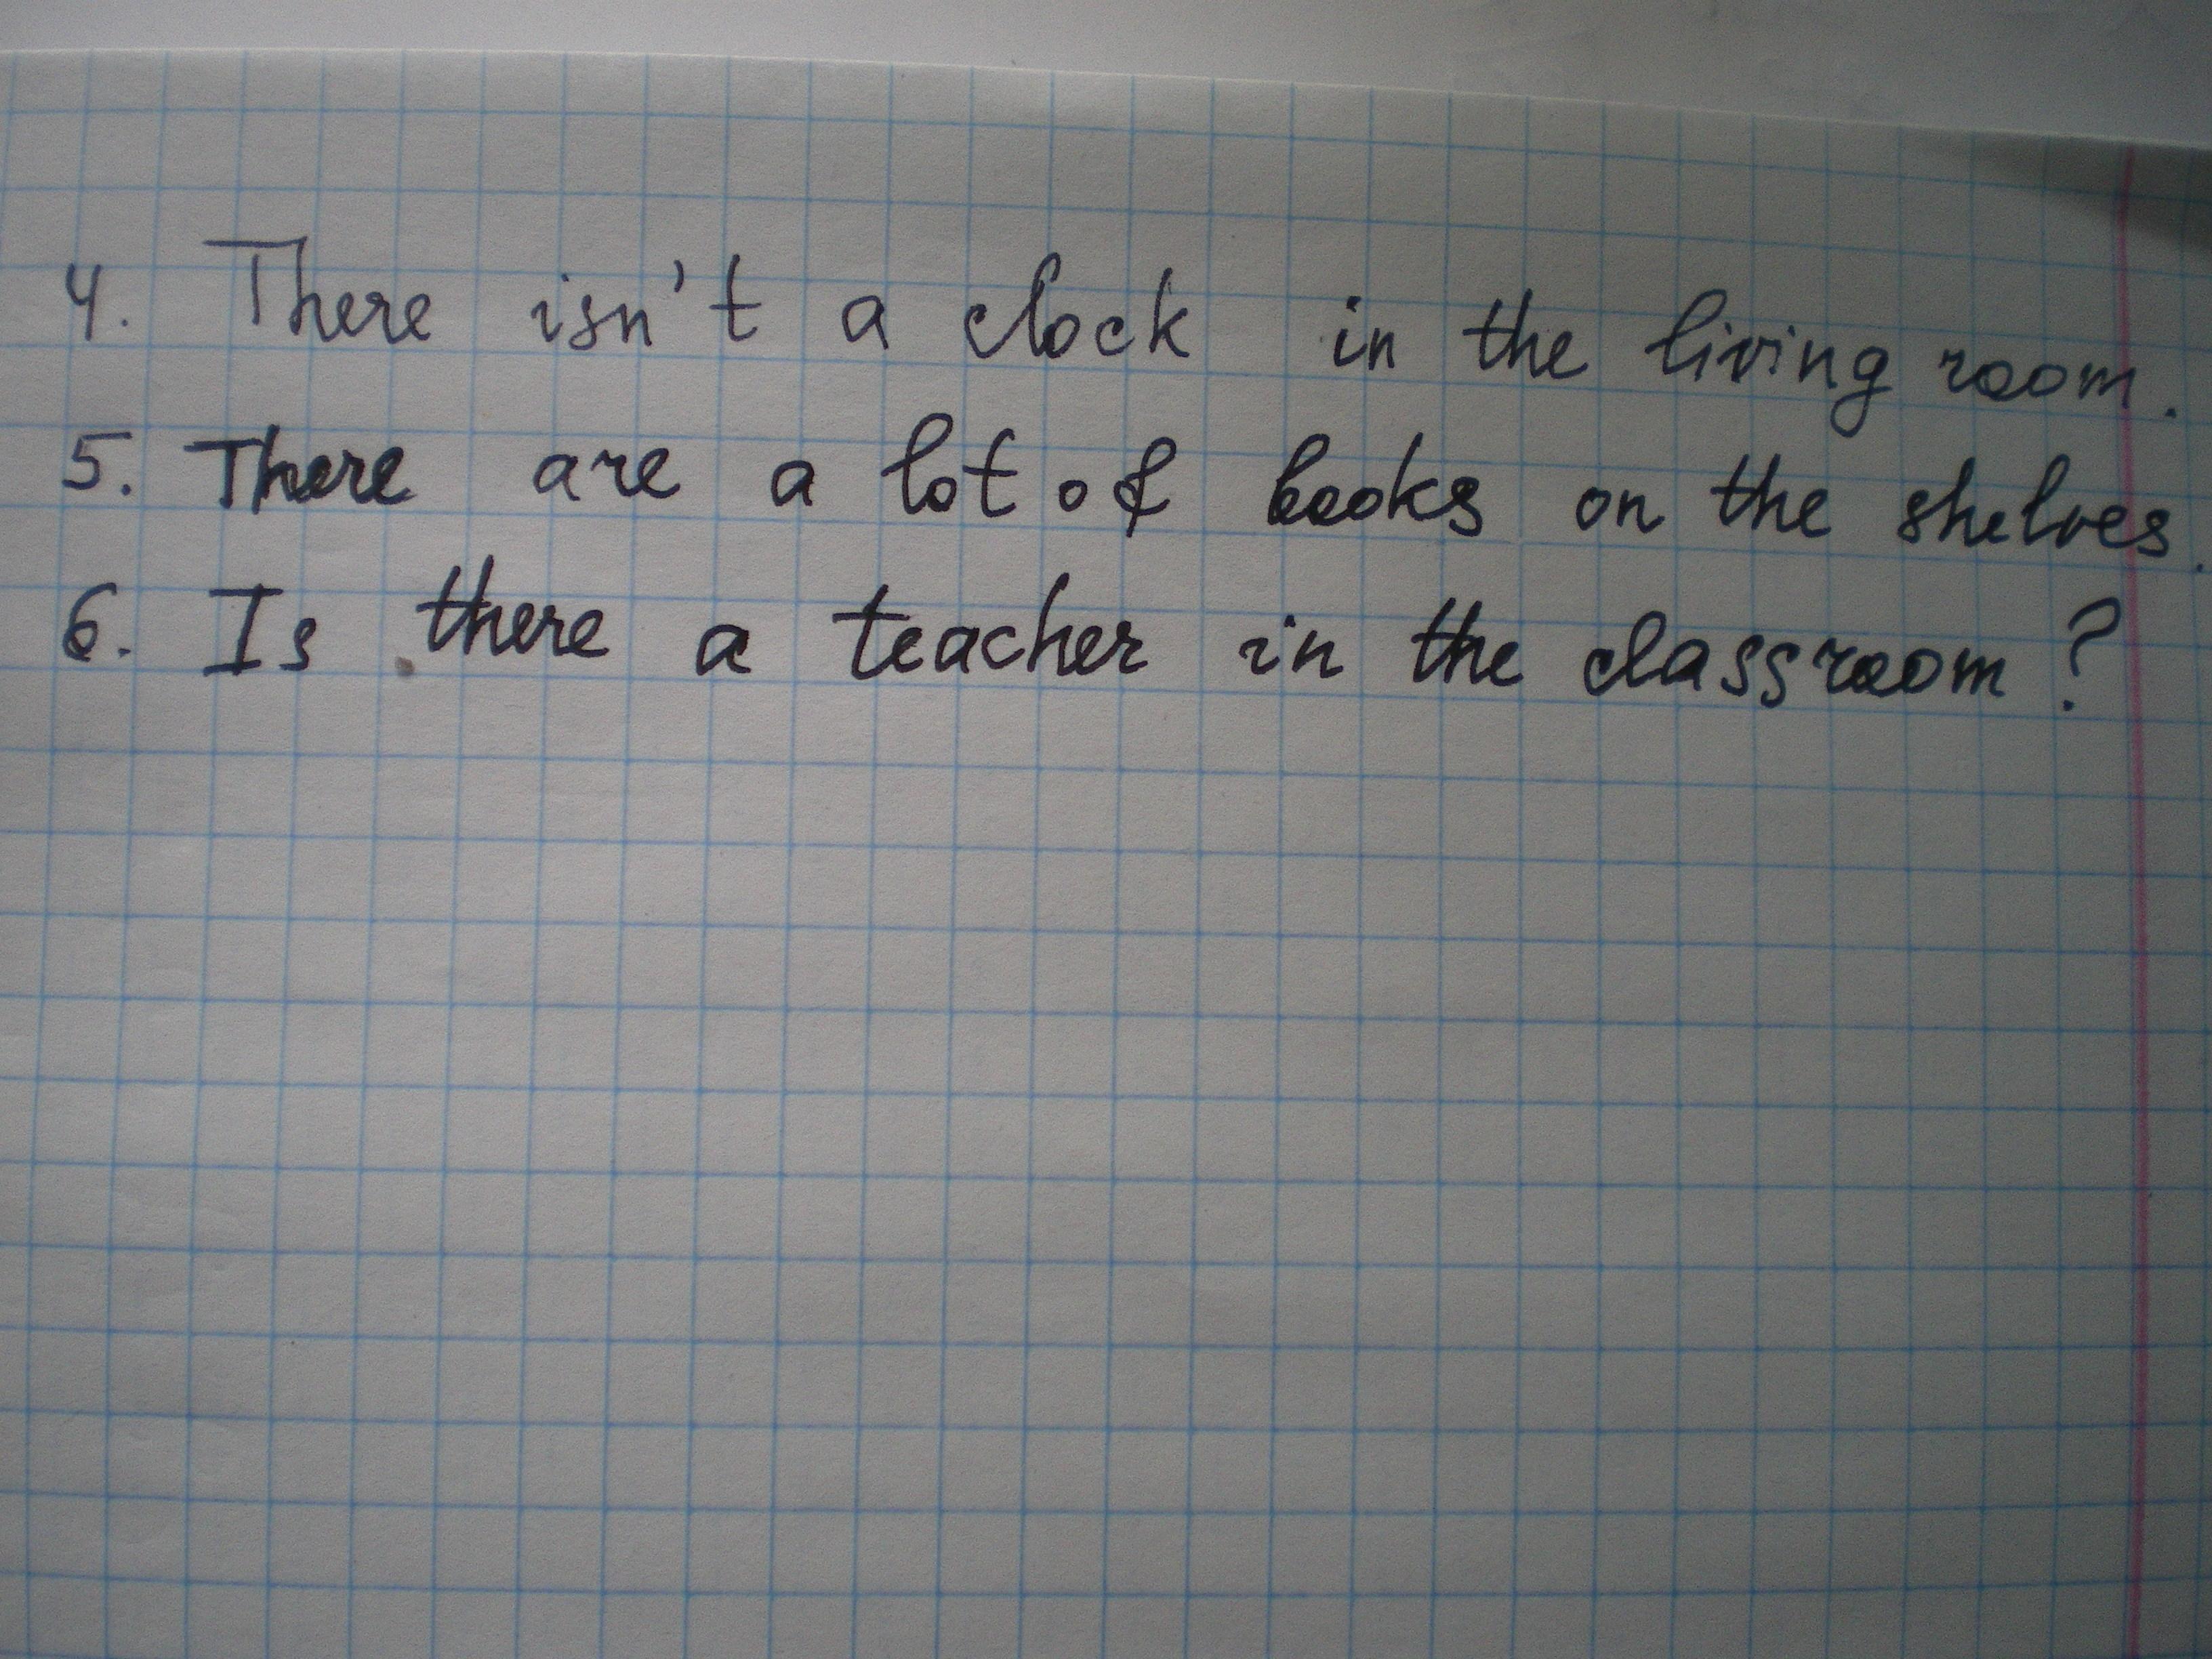 4. There isn't a clock in the living room.
5. There are a lot of books on the shelves.
6. Is there a teacher in the classroom?